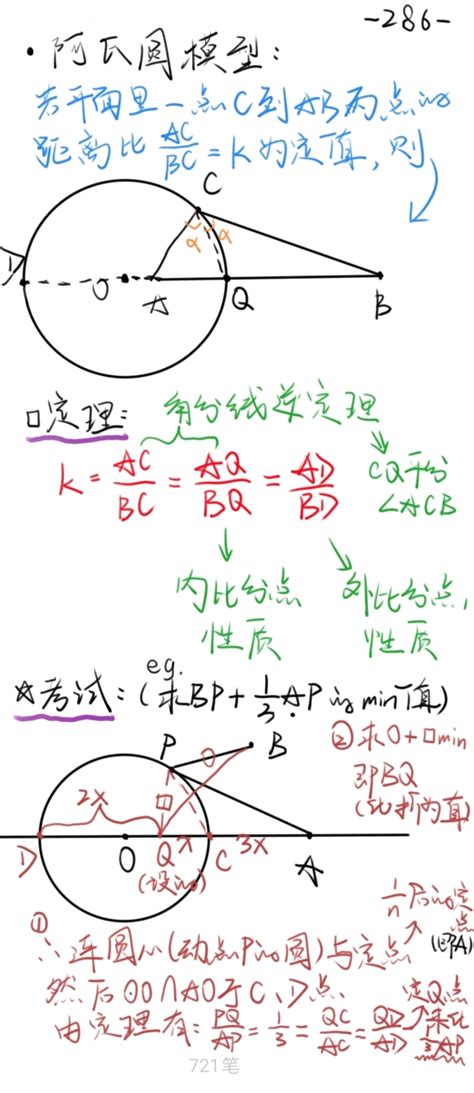 -286-
• 阿氏圆模型:
若平面里一点C到AB两点的
距离比 AC/BC = K为定值, 则
C
α α
D O A Q B
□定理: 角分线逆定理
k = AC/BC = AQ/BQ = AD/BD
CQ平分
∠ACB
内比分点 外比分点,
性质 性质
eg.
☆考试: (求BP + 1/3 AP 的min值)
P O B
② 求O+□min
即BQ
(比折两直)
2x □
D O Q x C 3x A
(设的)
1/n 后的定点
(即A)
①
∴连圆心(动点P的圆)与定点
然后⊙O∩AO于C、D点.
定Q点
由定理有: PQ/AP = 1/3 = QC/AC = QD/AD
来比
1/3 AP
721笔